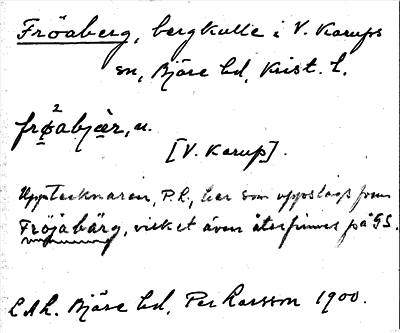 Fröaberg, bergkulle i V. Karups
sn, Bjäre hd, Krist. l.
frǫ̈²abjær, n.
[V. Karup].
Upptecknaren, P. L., har som uppslagsform
Fröjabärg, vilket även återfinnes på GS.
LAL. Bjäre hd, Per Larsson 1900.